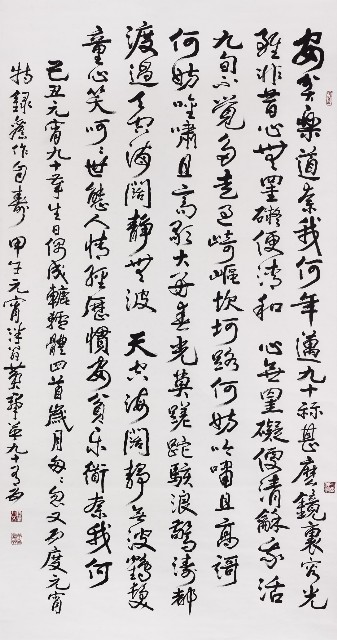 安貧樂道奈我何年邁九十祘甚麼鏡裏容光
雖非昔心無罣礙便清和 心無罣礙便清龢我活
九旬不覺多走過崎嶇坎坷路何妨吟嘯且高謌
何妨吟嘯且高歌大好春光莫蹉跎駭浪驚濤都
渡過天空海闊靜無波 天空海闊靜無波鶴髮
童心笑呵呵世態人情經歷慣安貧樂衜奈我何
己丑元宵九十華生日偶成轆轤體四首歲月匆匆忽又度元宵
特錄舊作自壽 甲午元宵黃九十有五